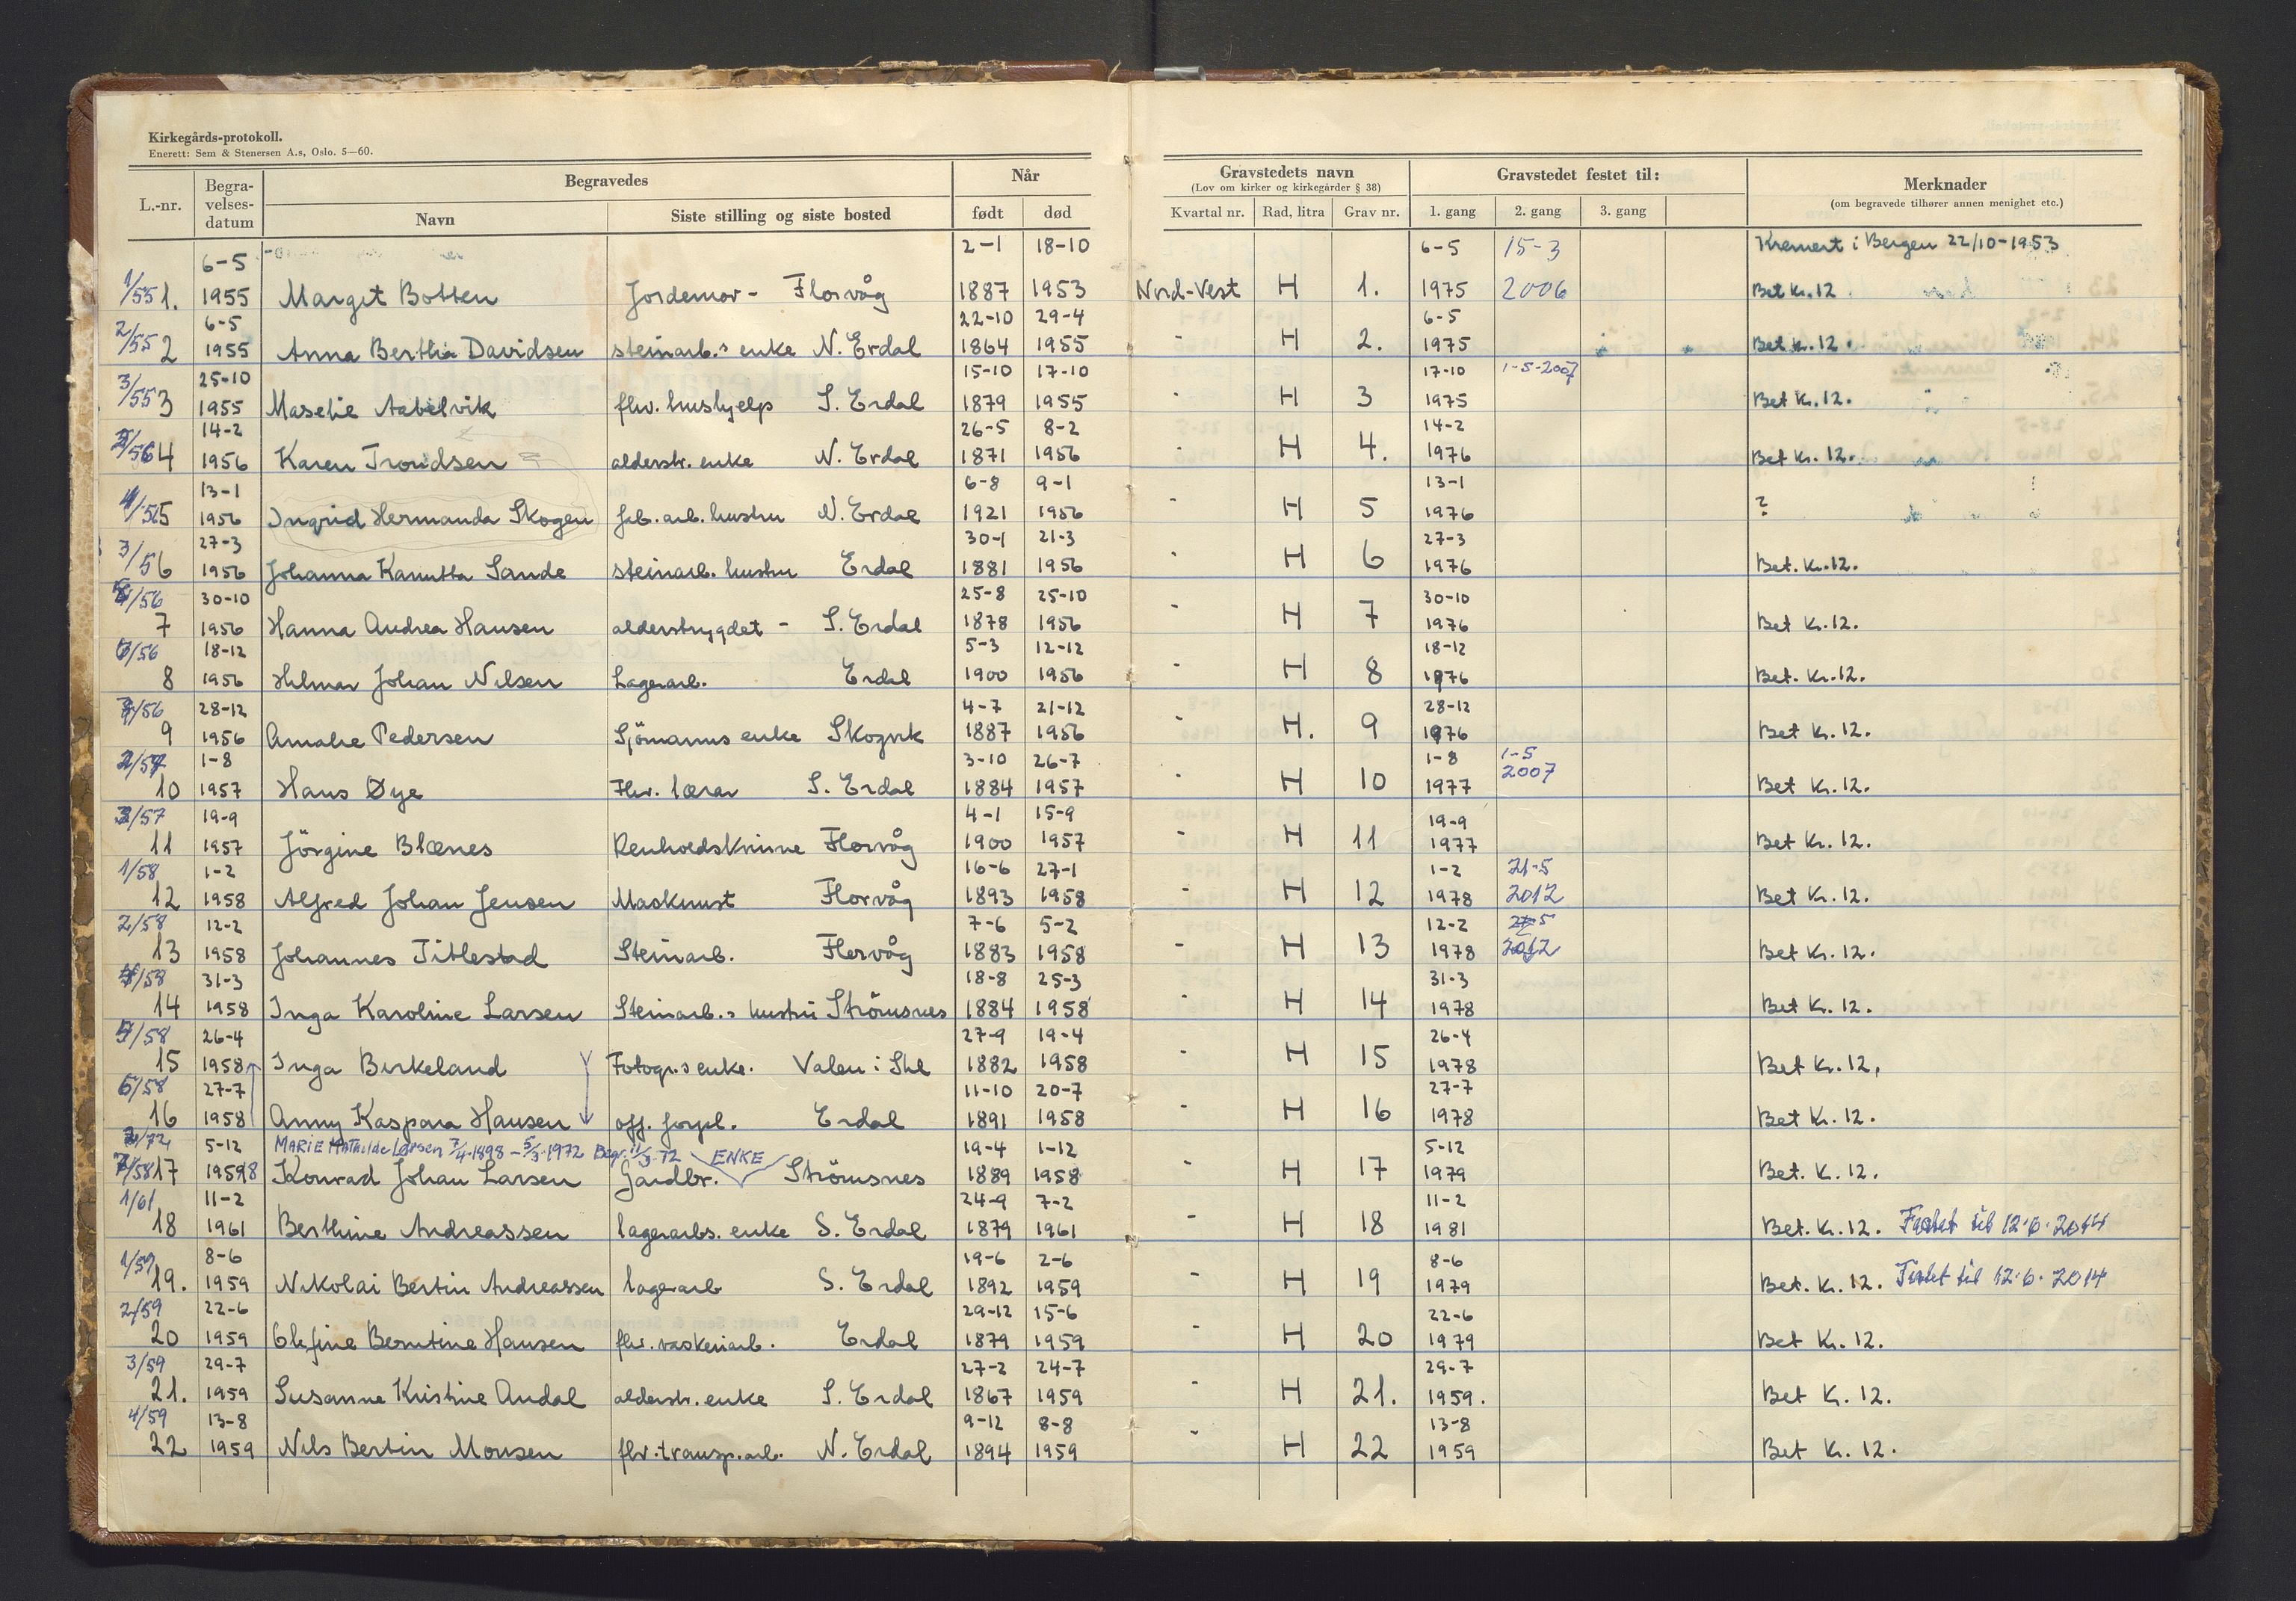 Kirkegårds-protokoll.
Enerett: Sem & Stenersen A.s, Oslo. 5—60.
L.-nr. Begra-velses-datum Begravedes Når Gravstedets navn Gravstedet festet til: Merknader
(Lov om kirker og kirkegårder § 38) (om begravede tilhører annen menighet etc.)
Navn Siste stilling og siste bosted født død Kvartal nr. Rad, litra Grav nr. 1. gang 2. gang 3. gang
6-5 2-1 18-10 6-5 15-3 Kremert i Bergen 22/10-1953
1/55 1. 1955 Margit Botten Jordemor - Florvåg 1887 1953 Nord-Vest H 1. 1975 2006 Bet kr. 12
6-5 22-10 29-4 6-5
2/55 2 1955 Anna Berthia Davidsen steinarb.s enke N. Erdal 1864 1955 - H 2. 1975 Bet kr. 12.
25-10 15-10 17-10 17-10 1-5-2007
3/55 3 1955 Maselie Aabelvik fhv. hushjelp S. Erdal 1879 1955 - H 3 1975 Bet kr. 12.
14-2 26-5 8-2 14-2
/56 4 1956 Karen Trondsen alderstr. enke N. Erdal 1871 1956 - H 4. 1976 Bet kr. 12.
13-1 6-8 9-1 13-1
/56 5 1956 Ingrid Hermanda Skogen fab. arb. hustru N. Erdal 1921 1956 - H 5 1976 ?
27-3 30-1 21-3 27-3
3/56 6 1956 Johanna Kanutta Sande steinarb. hustru Erdal 1881 1956 - H 6 1976 Bet. kr. 12.
/56 30-10 25-8 25-10 30-10
7 1956 Hanna Andrea Hansen alderstrygdet - S. Erdal 1878 1956 - H 7 1976 Bet kr. 12.
/56 18-12 5-3 12-12 18-12
8 1956 Hilmar Johan Nilsen Lagerarb. Erdal 1900 1956 - H 8 1976 Bet. kr. 12.
/56 28-12 4-7 21-12 28-12
9 1956 Amalie Pedersen Sjömanns enke Skogvik 1887 1956 - H. 9 1976 Bet kr. 12.
2/57 1-8 3-10 26-7 1-8 1-5
10 1957 Hans Øye Fhv. lærar S. Erdal 1884 1957 - H 10 1977 2007 Bet kr. 12.
3/57 19-9 4-1 15-9 19-9
11 1957 Jörgine Blænes Renholdskvinne Florvåg 1900 1957 - H 11 1977 Bet kr. 12.
1/58 1-2 16-6 27-1 1-2 21-5
12 1958 Alfred Johan Jensen Maskinist Florvåg 1893 1958 - H 12 1978 2012 Bet kr. 12.
2/58 12-2 7-6 5-2 12-2
13 1958 Johannes Titlestad Steinarb. Florvåg 1883 1958 - H 13 1978 2012 Bet kr. 12.
/58 31-3 18-8 25-3 31-3
14 1958 Inga Karoline Larsen Steinarb.s hustru Strömsnes 1884 1958 - H 14 1978 Bet kr. 12.
/58 26-4 27-9 19-4 26-4
15 1958 Inga Birkeland Fotogr.s enke. Valen i Shl 1882 1958 - H 15 1978 Bet kr. 12.
6/58 27-7 11-10 20-7 27-7
16 1958 Anny Kaspara Hansen off. forpl. Erdal 1891 1958 - H 16 1978 Bet kr. 12.
/72 5-12 MARIE MATHilde Larsen 7/4-1898 - 5/3-1972 Begr. 11/3-72 ENKE 19-4 1-12 5-12
/58 17 1958 Konrad Johan Larsen Gardbr. Strömsnes 1889 1958 - H 17 1979 Bet. kr. 12.
1/61 11-2 24-9 7-2 11-2
18 1961 Berthine Andreassen lagerarbs. enke S. Erdal 1879 1961 - H 18 1981 Bet. kr. 12. Festet til 12.6.2014
1/59 8-6 19-6 2-6 8-6
19. 1959 Nikolai Bertin Andreassen lagerarb S. Erdal 1892 1959 - H 19 1979 Bet. kr. 12. Festet til 12.6.2014
2/59 22-6 29-12 15-6 22-6
20 1959 Olefine Berntine Hansen fhv. vaskeriarb. Erdal 1879 1959 - H 20 1979 Bet kr. 12.
3/59 29-7 27-2 24-7 29-7
21. 1959 Susanne Kristine Andal alderstr. enke S. Erdal 1867 1959 - H 21. 1959. Bet kr. 12.
4/59 13-8 9-12 8-8 13-8
22 1959 Nils Bertin Monsen fhv. transp.arb. N. Erdal 1894 1959 - H 22 1959 Bet kr. 12.